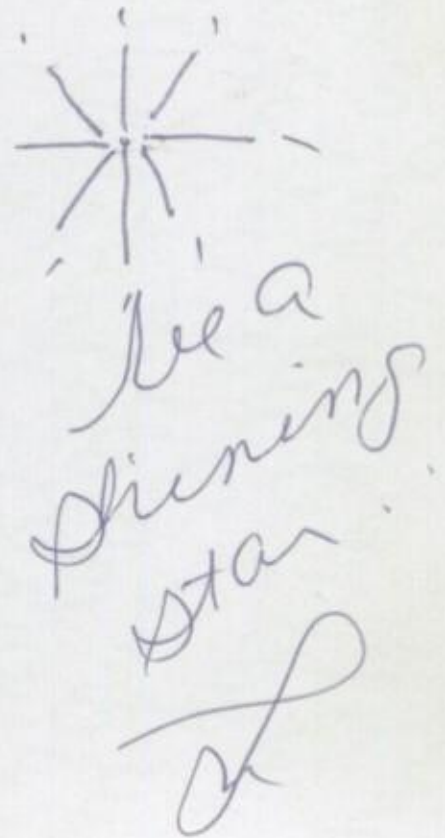 be a
shining
star.